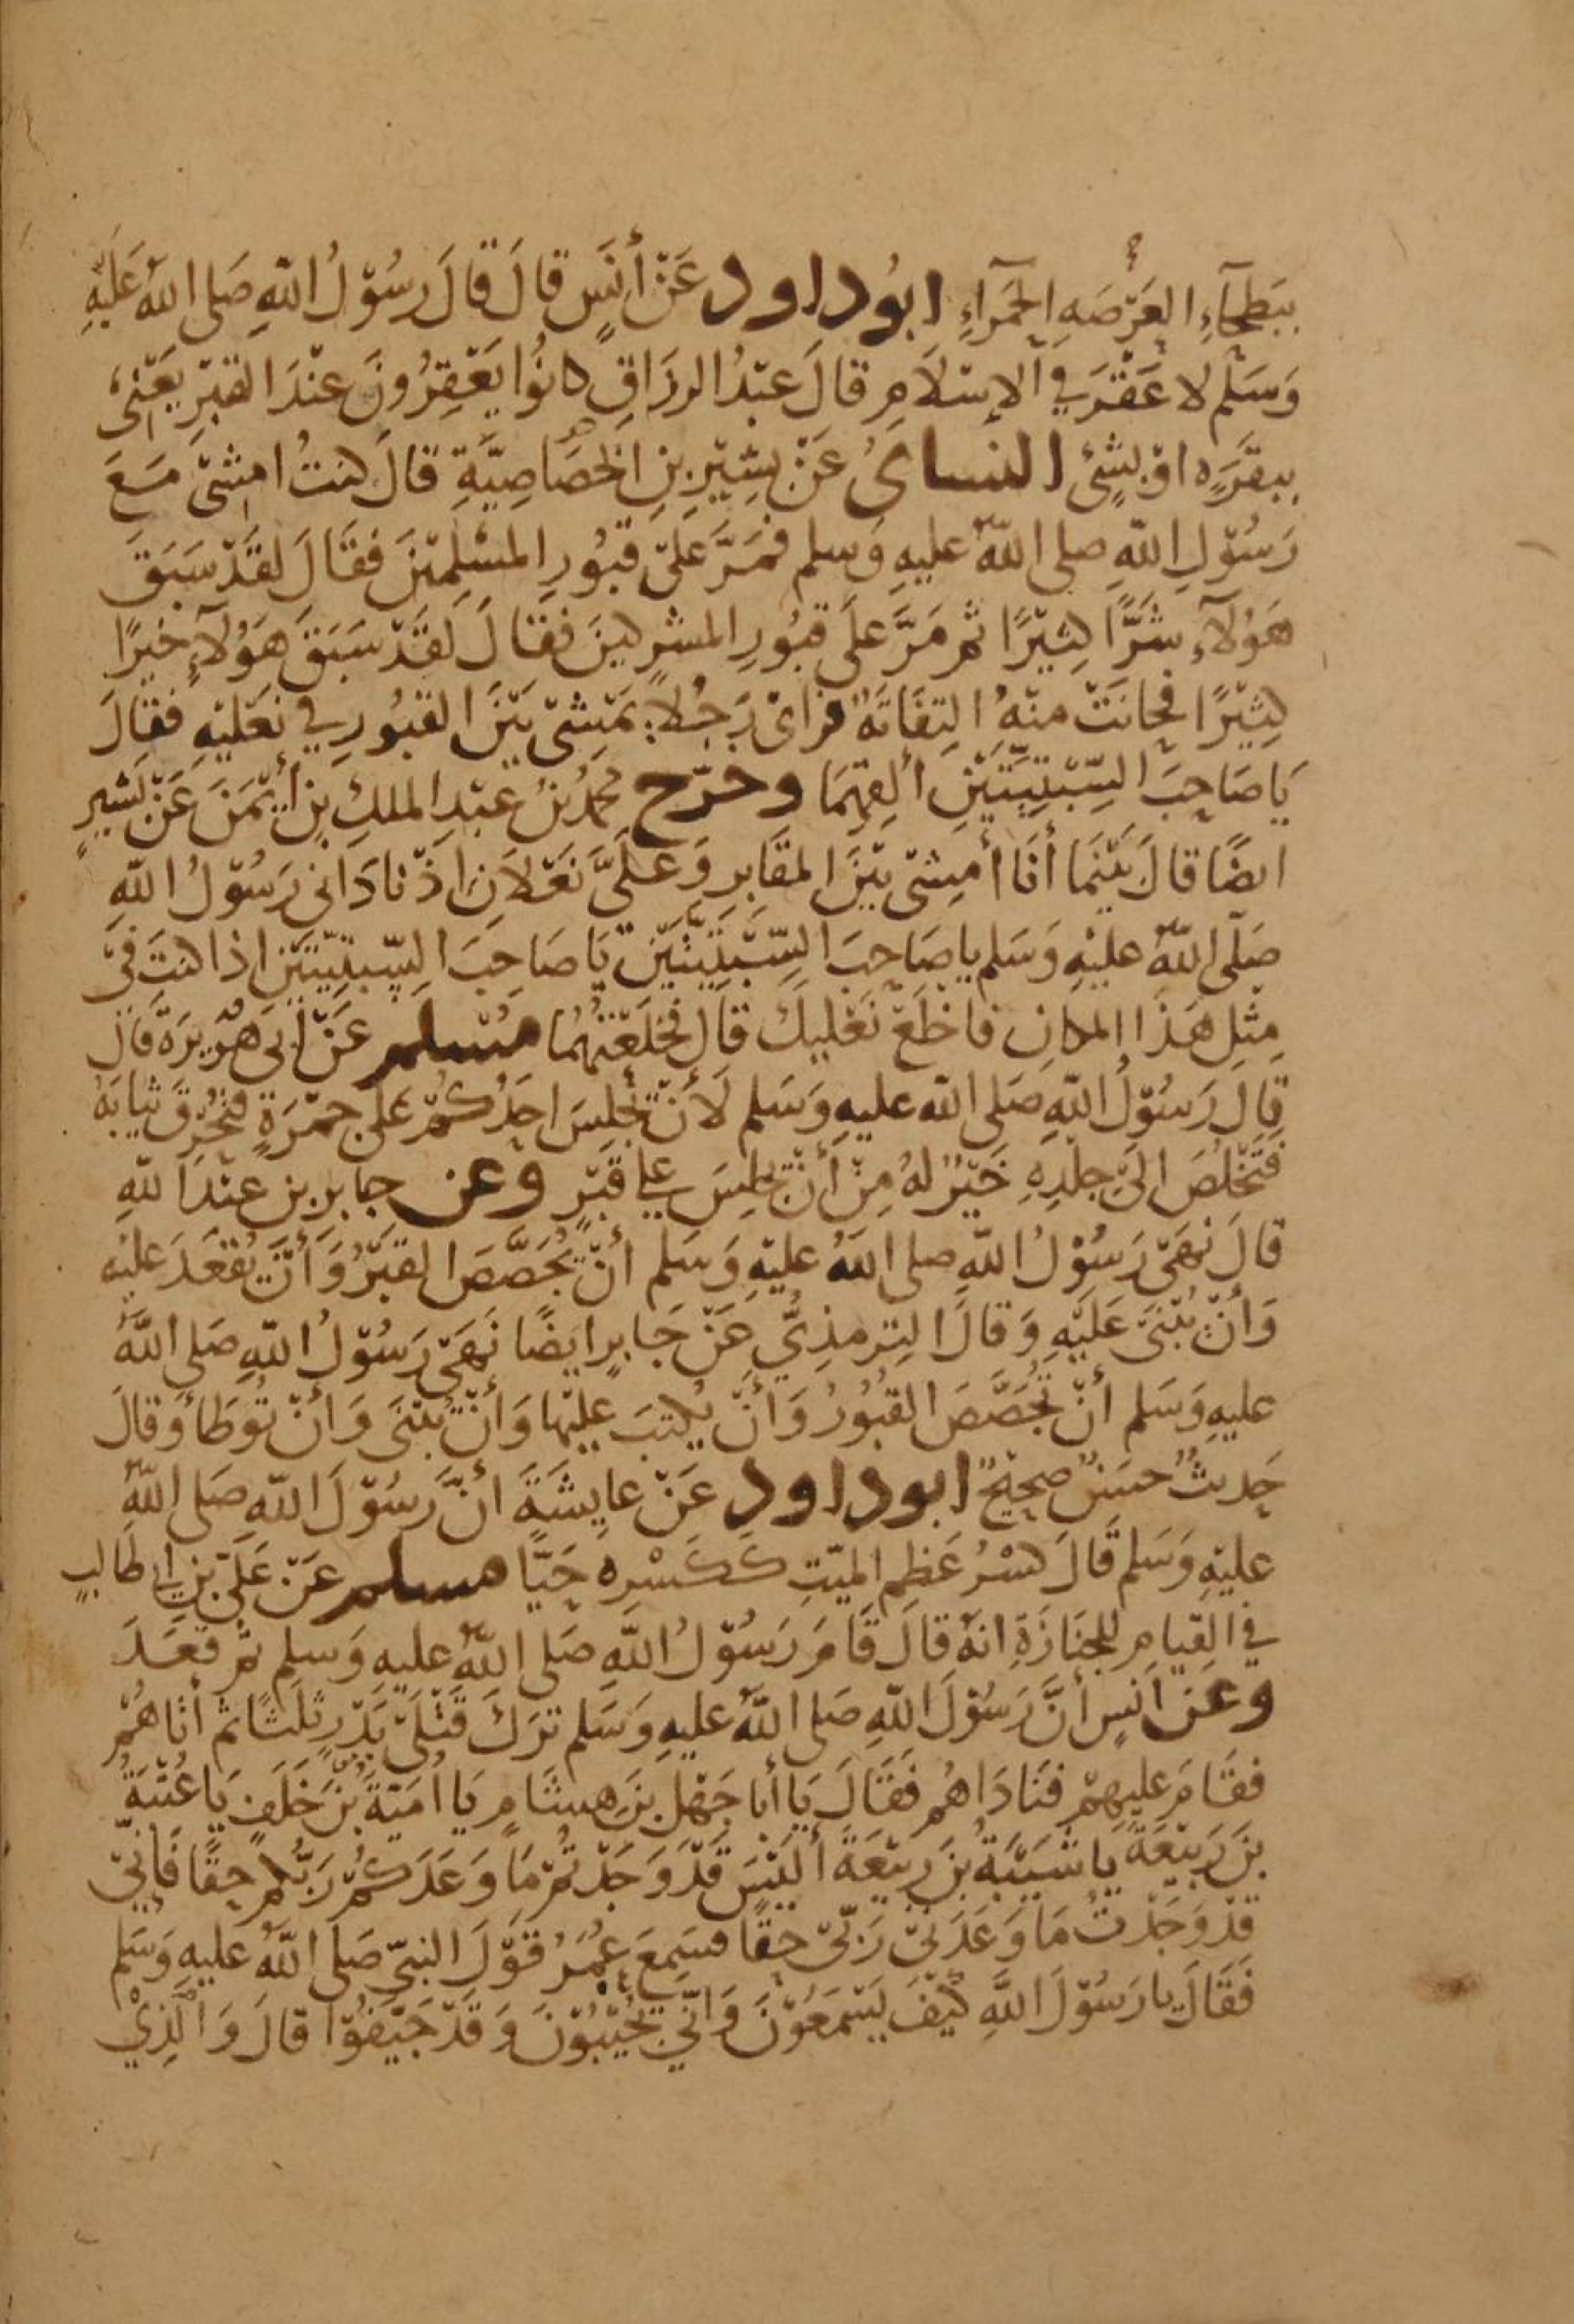 بِبَطحَآءِ العَرْصَهِ الحَمرَآءِ ابُوداود عَنْ أَنَسٍ قالَ قالَ رسُوْلُ اللّهِ صَلى اللّه عَلَيْهِ
وَسَلّم لا عَقْرَ في الإسْلاَمِ قالَ عبْدُ الرزاقِ كانُوا يَعْقِرُونَ عنْدَ القَبْرِ يَعْنِى
ببقَرَهٍ اوْ بشِئ النساىُ عَنْ بشِيْرِ بنِ الخصَاصِيَّةِ قالَ كنتُ امشِىْ مَعَ
رَسُوْلِ اللّهِ صلى اللّهُ عليهِ وَسلم فمَرَّ عَلىْ قبُورِ المسْلِمِيْنَ فقَالَ لقَدْ سَبَقَ
هَوُلآءِ شَرًّا كثِيْرًا ثم مَرَّ علَى قبُورِ المشرِكينَ فقَالَ لقَدْ سَبَقَ هَوُلآءِ خيْرًا
كثِيْرًا فحانَتْ منْهُ التِفَاتَهٌ فرَاىْ رَجُلاً يَمْشِىْ بَيْنَ القبُورِ في نعْليْهِ فقَالَ
يَا صَاحِبَ السِّبْتِيَّتَيْنِ ألقِهِمَا وخرّج محمدُ بنُ عبْدِ الملكِ بنِ أيْمَنَ عَنْ بَشيرٍ
ايضًا قالَ بَيْنَمَا أنَا أمشِىْ بيْنَ المقَابِرِ وَعلَىَّ نَعْلاَنِ اذْ نادَانى رَسُوْلُ اللّهِ
صَلّى اللّهُ عليْهِ وَسَلم يا صَاحِبَ السِّبْتِيَّتَيْنِ يَا صَاحِبَ السِّبْتِيَّتَيْنِ اذا كنتَ فىْ
مِثلِ هَذَا المكانِ فاخلَعْ نَعْليكَ قالَ فخلَعْتهُمَا مُسْلم عَنْ أبى هُرَيرَةَ قالَ
قالَ رَسُوْلُ اللّهِ صَلى اللّه عليهِ وَسَلم لَأنْ يجْلِسَ احَدُكُمْ عَلى جمْرَةٍ فتحْرِقَ ثيابَهُ
فتَخْلُصَ الىْ جلْدِهِ خَيْرٌ لهُ مِنْ أنْ يجْلِسَ علي قَبْرٍ وعن جابر بن عبْدَ اللّهِ
قالَ نهَىْ رَسُوْلُ اللّهِ صلى اللّهُ عليْهِ وَسَلم أنْ يجَصَّصَ القبْرُ وَأنْ يُقعَدَ عليْه
وَأنْ يُبْنَىْ عَليْهِ وَقالَ الترمذِىُّ عَنْ جَابرٍ ايضًا نَهَىْ رَسُوْلُ اللّهِ صَلى اللّهُ
عليهِ وَسَلم أنْ تُجَصَّصَ القبُوْرُ وَأنْ يُكتبَ عليْها وَأنْ يُبْنَى وَأنْ تُوطَأ وَقالَ
حَديثٌ حسَنٌ صحِيْحٌ ابوداود عَنْ عايِشَةَ أنَّ رَسُوْلَ اللّهِ صَلى اللّهُ
عليْهِ وَسَلم قَالَ كسْرُ عَظمِ الميّتِ كَكَسْرِه حَيًّا مسلم عَنْ عَلىّ بْنِ ابى طَالبٍ
في القيامِ للجنَازَةِ انهُ قالَ قَامَ رَسُوْلُ اللّهِ صَلى اللّهُ عليهِ وَسلم ثم قعَدَ
وعَن انَسٍ أنَّ رَسُوْلَ اللّهِ صَلى اللّهُ عليهِ وَسَلم ترَكَ قَتْلَىْ بَدْرٍ ثلَثًا ثم أتاهُمْ
فقَامَ عليهِمْ فنَادَاهُم فقَالَ يَا أبا جَهْلِ بنَ هشَامٍ يَا امَيّةَ بْنَ خَلَفٍ يَا عُتْبَةُ
بنَ رَبِيْعَةَ يَا شَيْبَةُ بنَ ربيْعَةَ أليْسَ قَدْ وَجَدْتُمْ مَا وَعَدَكُمْ رَبُّكم حقًا فَإنّىْ
قدْ وَجَدْتُ مَا وَعَدَنىْ رَبّىْ حقًا فسَمِعَ عُمَرُ قَوْلَ النبىّ صَلى اللّهُ عليهِ وَسَلم
فَقَالَ يا رَسُوْلَ اللّهِ كيْفَ يَسْمَعُوْنَ وَأنّىْ يُجيْبُوْنَ وَقَدْ جَيّفُوْا قالَ وَالَّذِيْ